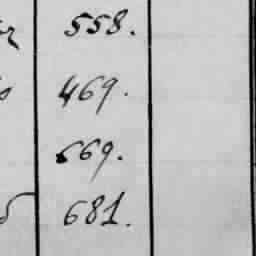 558.
469.
669.
681.